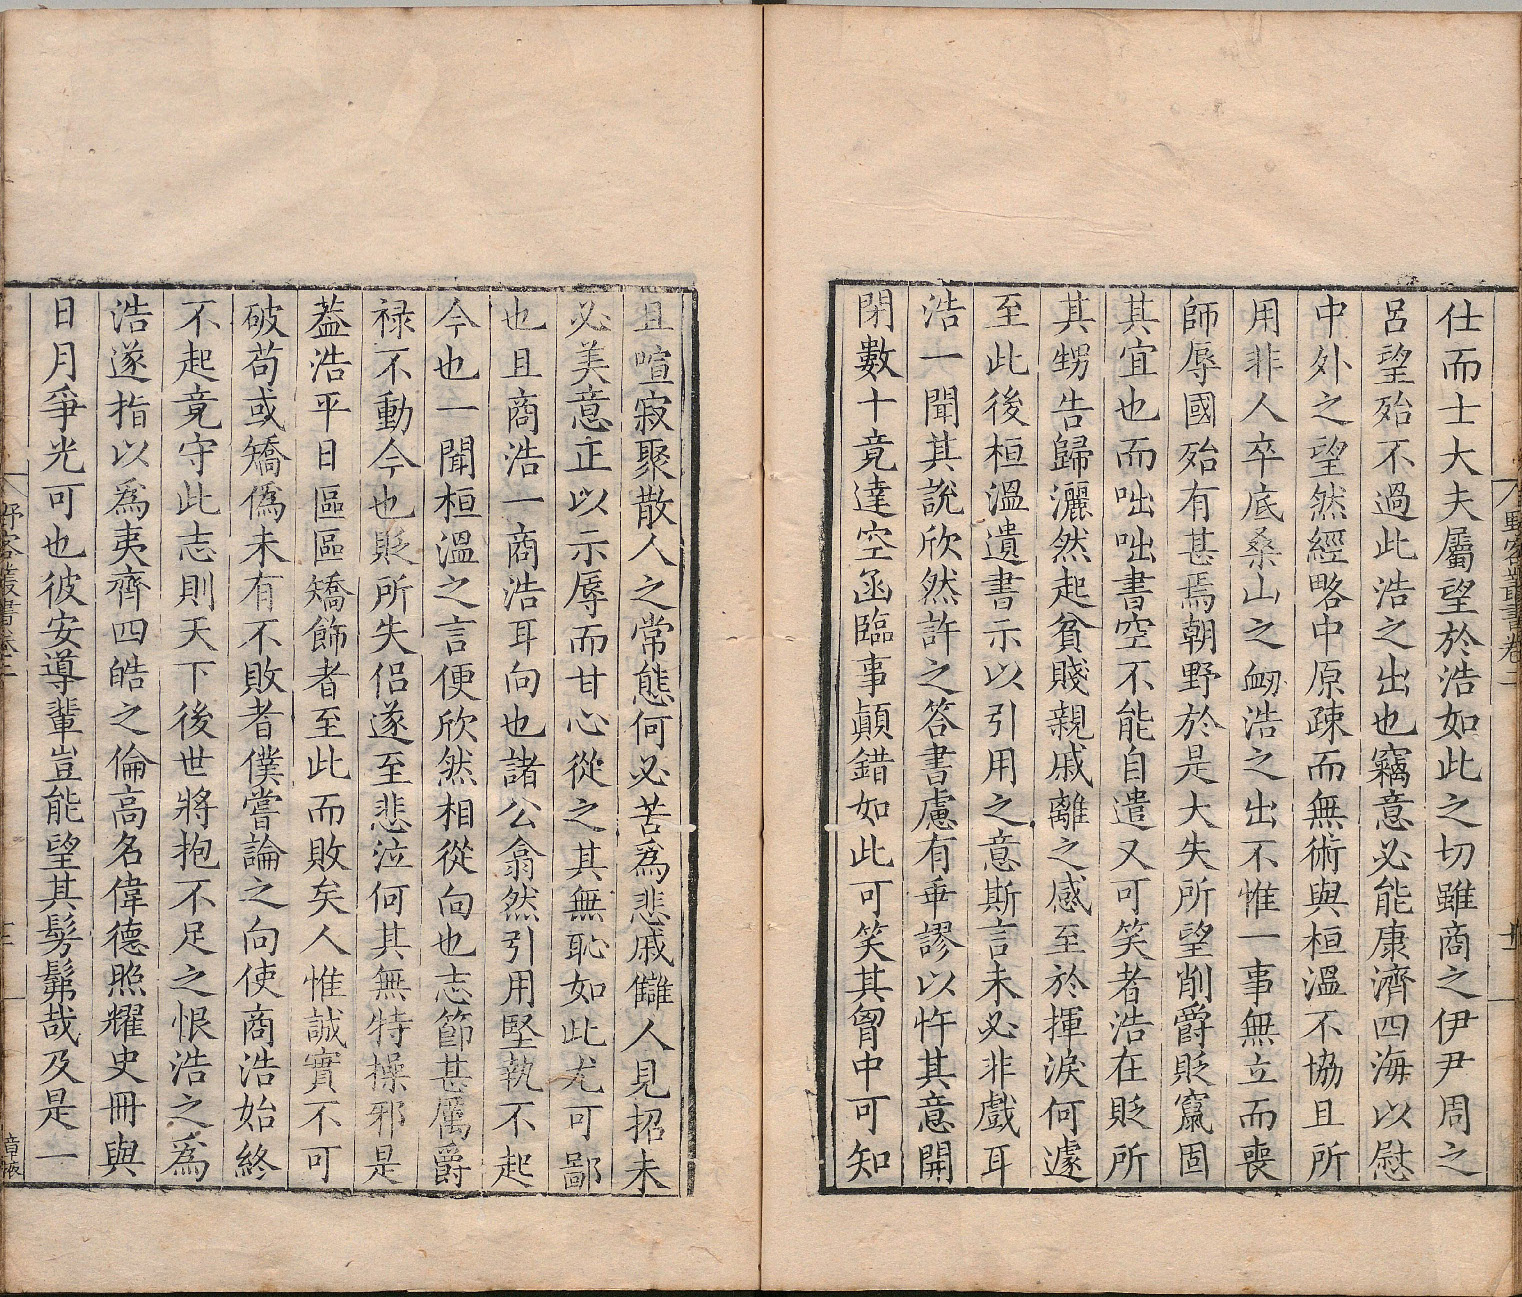 野客叢書卷十二
仕而士大夫屬望於浩如此之切雖商之伊尹周之
呂望殆不過此浩之出也竊意必能康濟四海以慰
中外之望然經略中原疎而無術與桓溫不協且所
用非人卒底桑山之衂浩之出不惟一事無立而喪
師辱國殆有甚焉朝野於是大失所望削爵貶竄固
其宜也而咄咄書空不能自遣又可笑者浩在貶所
其甥告歸灑然起貧賤親戚離之感至於揮淚何遽
至此後桓溫遺書示以引用之意斯言未必非戲耳
浩一聞其說欣然許之答書慮有乖謬以忤其意開
閉數十竟達空函臨事顛錯如此可笑其胷中可知
且喧寂聚散人之常態何必苦爲悲戚讎人見招未
必美意正以示辱而甘心從之其無恥如此尤可鄙
也且商浩一商浩耳向也諸公翕然引用堅執不起
今也一聞桓溫之言便欣然相從向也志節甚厲爵
祿不動今也貶所失侶遂至悲泣何其無特操邪是
葢浩平日區區矯飾者至此而敗矣人惟誠實不可
破苟或矯僞未有不敗者僕嘗論之向使商浩始終
不起竟守此志則天下後世將抱不足之恨浩之爲
浩遂指以爲夷齊四皓之倫高名偉德照耀史冊與
日月爭光可也彼安導輩豈能望其髣髴哉及是一
野客叢書卷十二